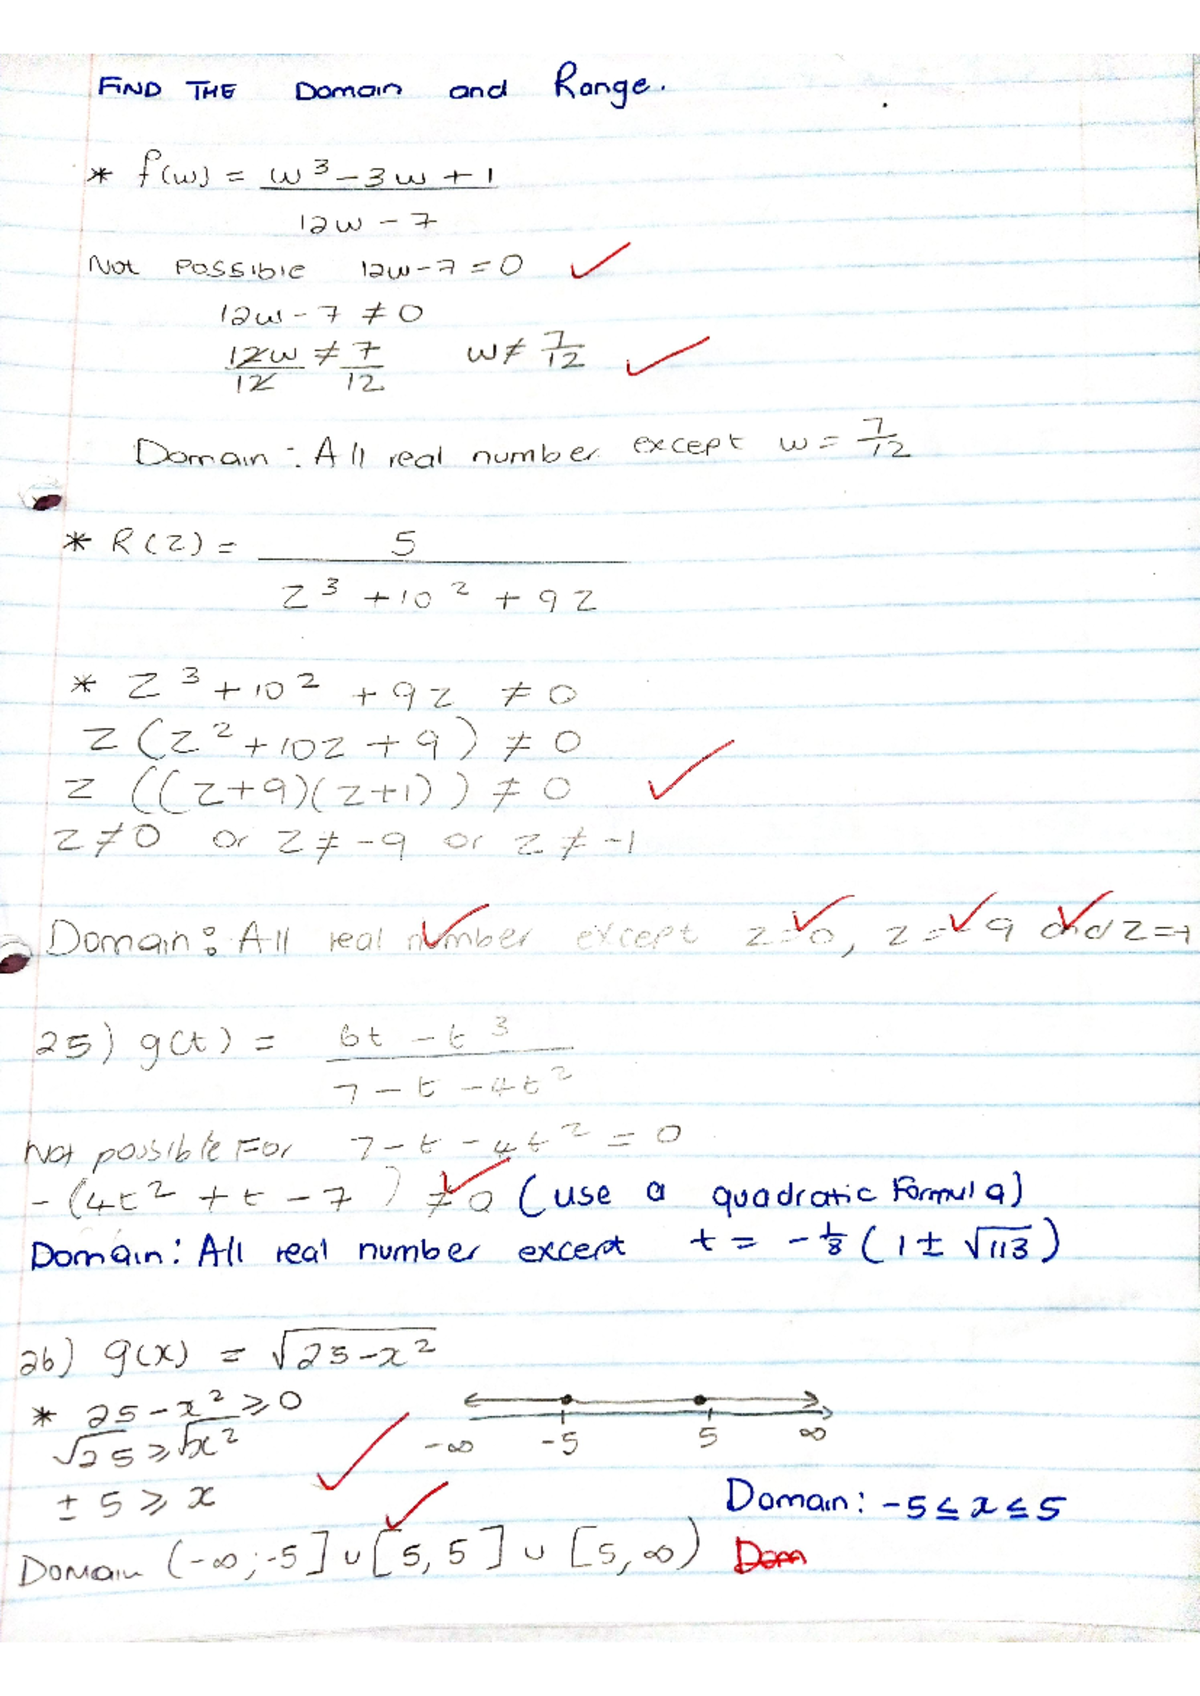 FIND THE Domain and Range.
* f(w) = w³ - 3w + 1
12w - 7
Not Possible 12w - 7 = 0 ✓
12w - 7 ≠ 0
12w ≠ 7 w ≠ 7/12 ✓
12 12
Domain : All real number except w = 7/12
* R(z) = 5
z³ + 10² + 9z
* z³ + 10² + 9z ≠ 0
z (z² + 10z + 9) ≠ 0
z ((z+9)(z+1)) ≠ 0 ✓
z ≠ 0 or z ≠ -9 or z ≠ -1
Domain : All real number except z = 0, z = -9 and z = -1
25) g(t) = 6t - t³
7 - t - 4t²
Not possible For 7 - t - 4t² = 0
- (4t² + t - 7) ≠ 0 (use a quadratic Formula)
Domain : All real number except t = - 1/8 (1 ± √113)
26) g(x) = √25 - x²
* 25 - x² ≥ 0
√25 ≥ √x²
-∞ -5 5 ∞
± 5 ≥ x ✓
Domain : -5 ≤ x ≤ 5
Domain (-∞; -5] ∪ [5, 5] ∪ [5, ∞) Dom